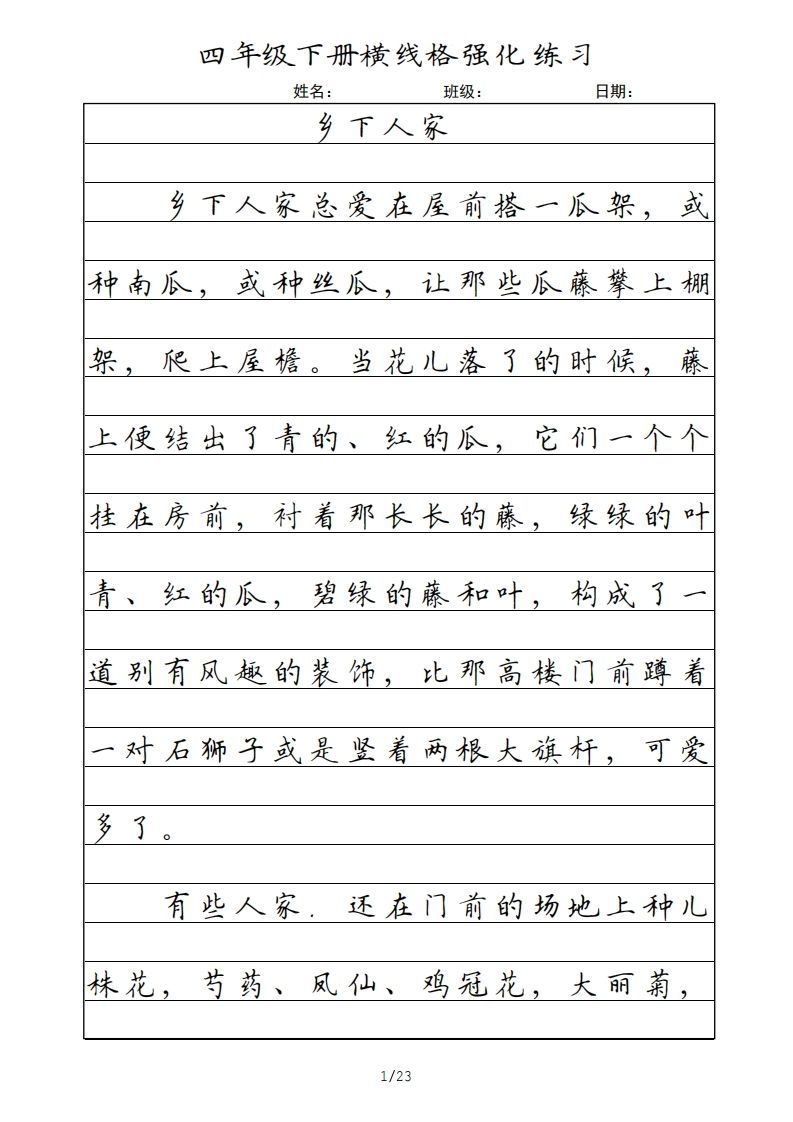 四年级下册横线格强化练习
姓名： 班级： 日期：
乡下人家
乡下人家总爱在屋前搭一瓜架，或
种南瓜，或种丝瓜，让那些瓜藤攀上棚
架，爬上屋檐。当花儿落了的时候，藤
上便结出了青的、红的瓜，它们一个个
挂在房前，衬着那长长的藤，绿绿的叶
青、红的瓜，碧绿的藤和叶，构成了一
道别有风趣的装饰，比那高楼门前蹲着
一对石狮子或是竖着两根大旗杆，可爱
多了。
有些人家．还在门前的场地上种儿
株花，芍药、凤仙、鸡冠花，大丽菊，
1/23